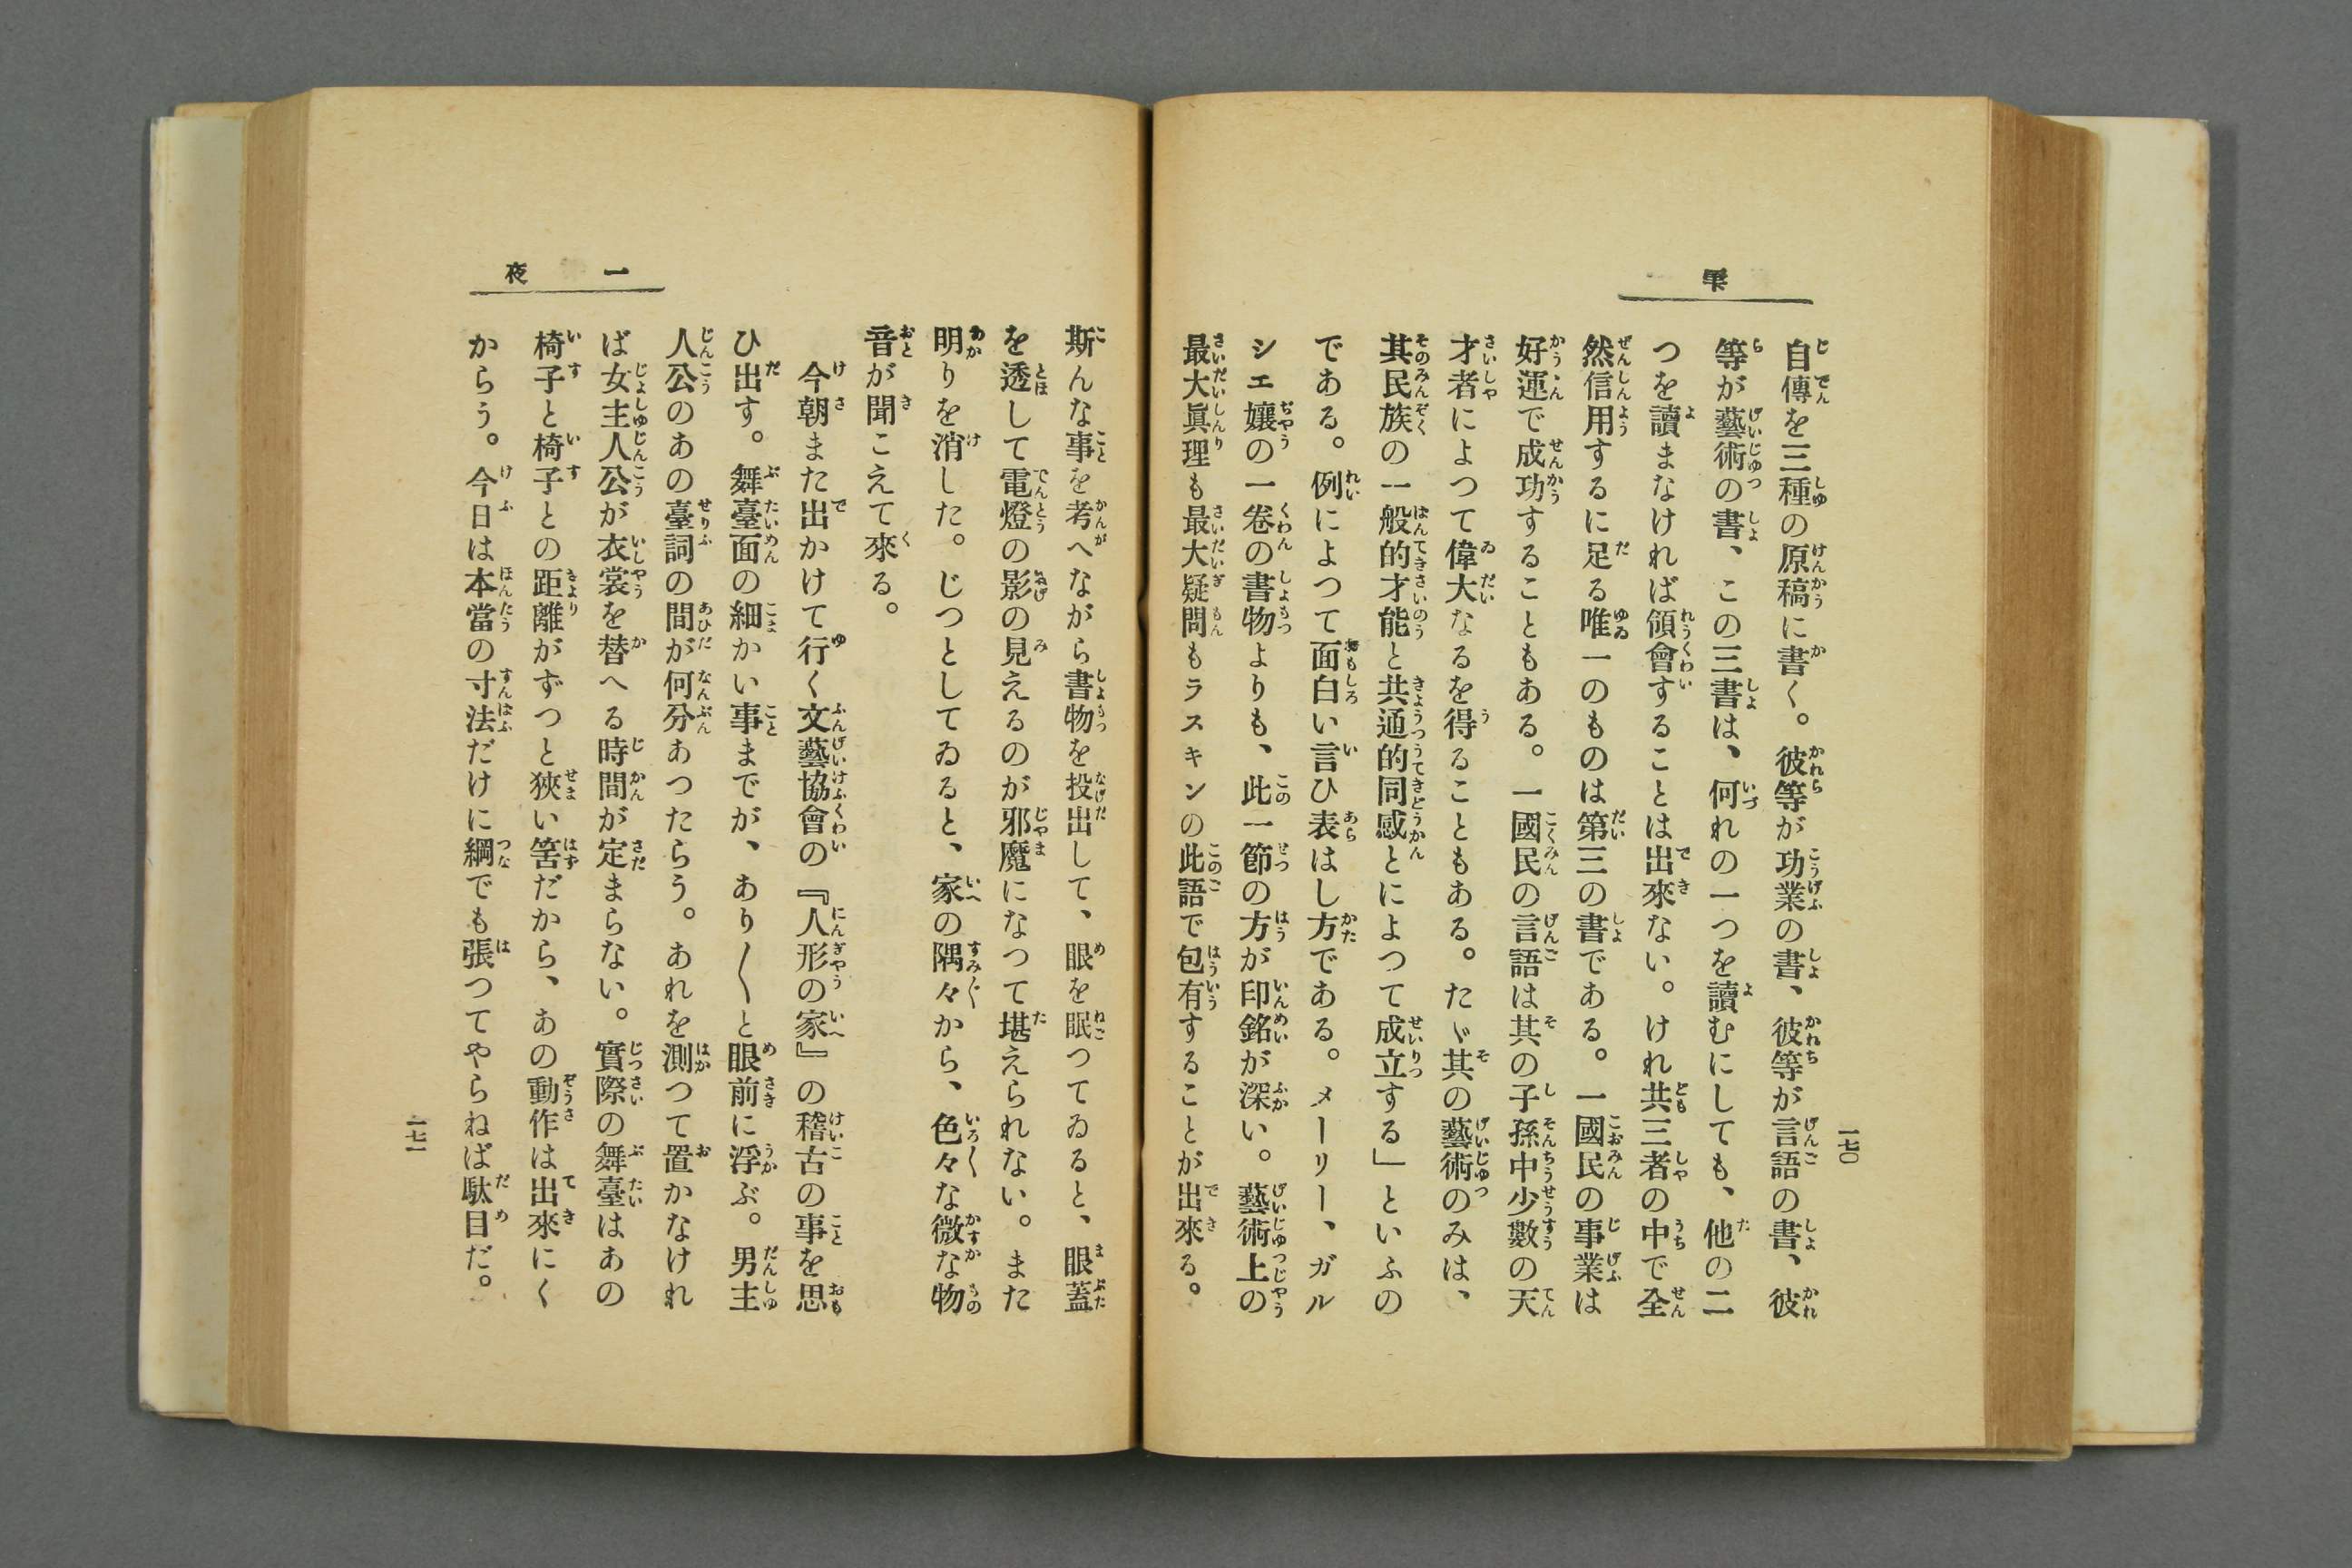 雫
一七〇
自傳を三種の原稿に書く。彼等が功業の書、彼等が言語の書、彼
等が藝術の書、この三書は、何れの一つを讀むにしても、他の二
つを讀まなければ領會することは出來ない。けれ共三者の中で全
然信用するに足る唯一のものは第三の書である。一國民の事業は
好運で成功することもある。一國民の言語は其の子孫中少數の天
才者によつて偉大なるを得ることもある。たゞ其の藝術のみは、
其民族の一般的才能と共通的同感とによつて成立する」といふの
である。例によつて面白い言ひ表はし方である。メーリー、ガル
シエ孃の一卷の書物よりも、此一節の方が印銘が深い。藝術上の
最大眞理も最大疑問もラスキンの此語で包有することが出來る。
一夜
斯んな事を考へながら書物を投出して、眼を眠つてゐると、眼蓋
を透して電燈の影の見えるのが邪魔になつて堪えられない。また
明りを消した。じつとしてゐると、家の隅々から、色々な微な物
音が聞こえて來る。
今朝また出かけて行く文藝協會の『人形の家』の稽古の事を思
ひ出す。舞臺面の細かい事までが、あり〱と眼前に浮ぶ。男主
人公のあの臺詞の間が何分あつたらう。あれを測つて置かなけれ
ば女主人公が衣裳を替へる時間が定まらない。實際の舞臺はあの
椅子と椅子との距離がずつと狹い筈だから、あの動作は出來にく
からう。今日は本當の寸法だけに綱でも張つてやらねば駄目だ。
一七一